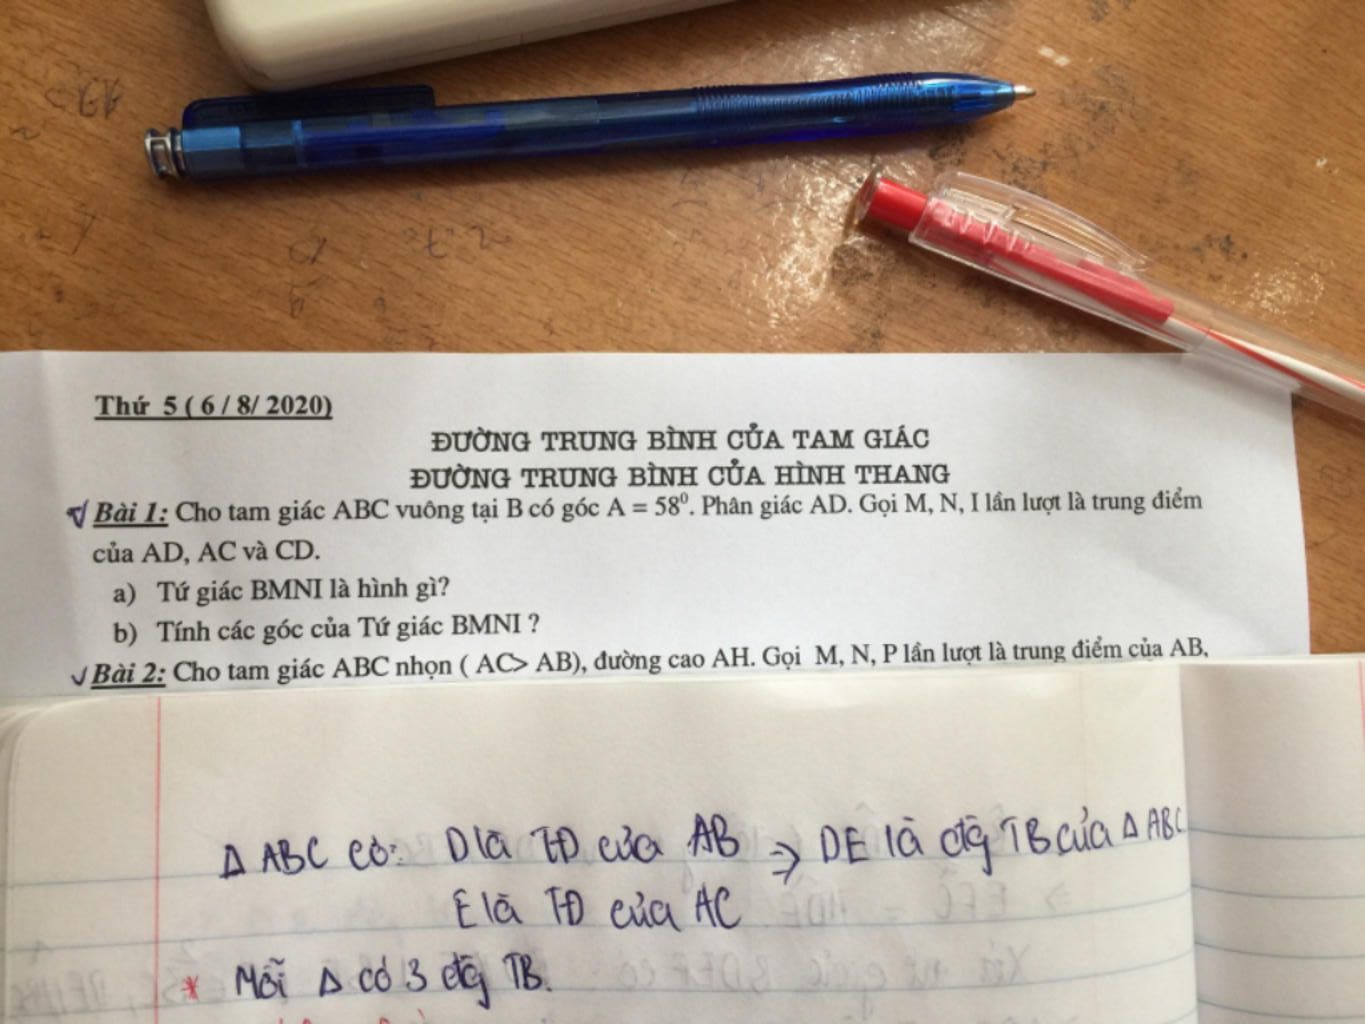 Thứ 5 ( 6 / 8/ 2020)
ĐƯỜNG TRUNG BÌNH CỦA TAM GIÁC
ĐƯỜNG TRUNG BÌNH CỦA HÌNH THANG
Bài 1: Cho tam giác ABC vuông tại B có góc A = 58⁰. Phân giác AD. Gọi M, N, I lần lượt là trung điểm
của AD, AC và CD.
a) Tứ giác BMNI là hình gì?
b) Tính các góc của Tứ giác BMNI ?
Bài 2: Cho tam giác ABC nhọn ( AC> AB), đường cao AH. Gọi M, N, P lần lượt là trung điểm của AB,
Δ ABC có: D là TĐ của AB => DE là đtg TB của Δ ABC
E là TĐ của AC
* Mỗi Δ có 3 đtg TB.